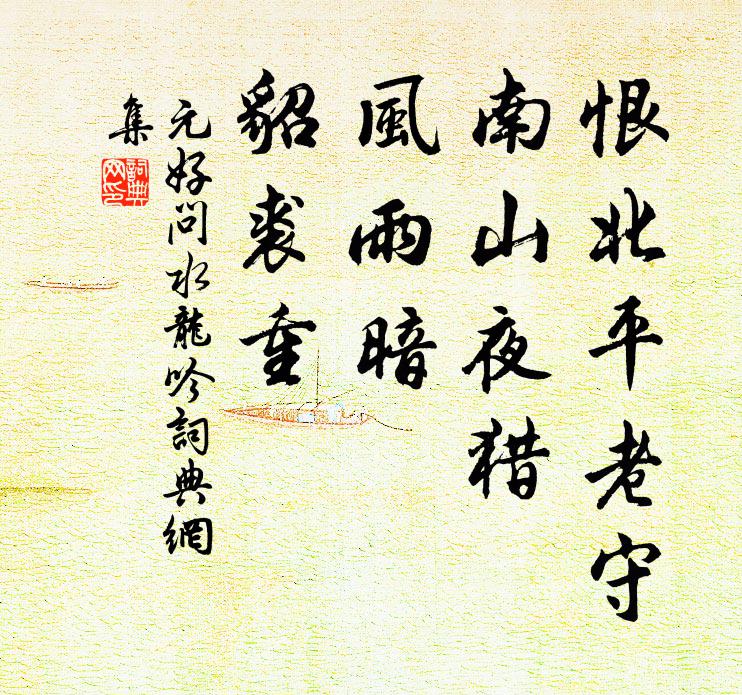 恨北平老守
南山夜猎
風雨暗
貂裘重
元好问水龍吟詞典網
集
詞典网印